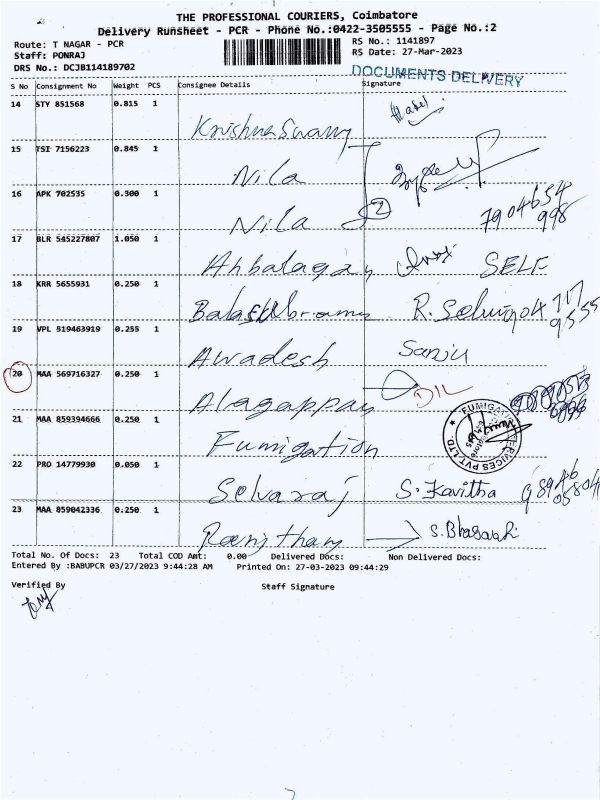 THE PROFESSIONAL COURIERS, Coimbatore
Delivery Runsheet - PCR - Phone No.:0422-3505555 - Page No.:2
Route: T NAGAR - PCR
RS No.: 1141897
Staff: PONRAJ
RS Date: 27-Mar-2023
DRS No.: DCJB114189702
DOCUMENTS DELIVERY
S No Consignment No Weight PCS Consignee Details Signature
14 STY 851568 0.815 1
Krishna Swamy
15 TSI 7156223 0.845 1
Nila
16 APK 702535 0.300 1
Nila
7904654
998
17 BLR 545227807 1.050 1
SELF
18 KRR 5655931 0.250 1
19 VPL 819463919 0.255 1
Awadesh Sanju
20 MAA 569716327 0.250 1
Alagappan D/L
21 MAA 859394666 0.250 1
Fumigation
22 PRO 14779930 0.050 1
Selvaraj S. Kavitha
23 MAA 859042336 0.250 1
Total No. Of Docs: 23 Total COD Amt: 0.00 Delivered Docs: Non Delivered Docs:
Entered By :BABUPCR 03/27/2023 9:44:28 AM Printed On: 27-03-2023 09:44:29
Verified By Staff Signature